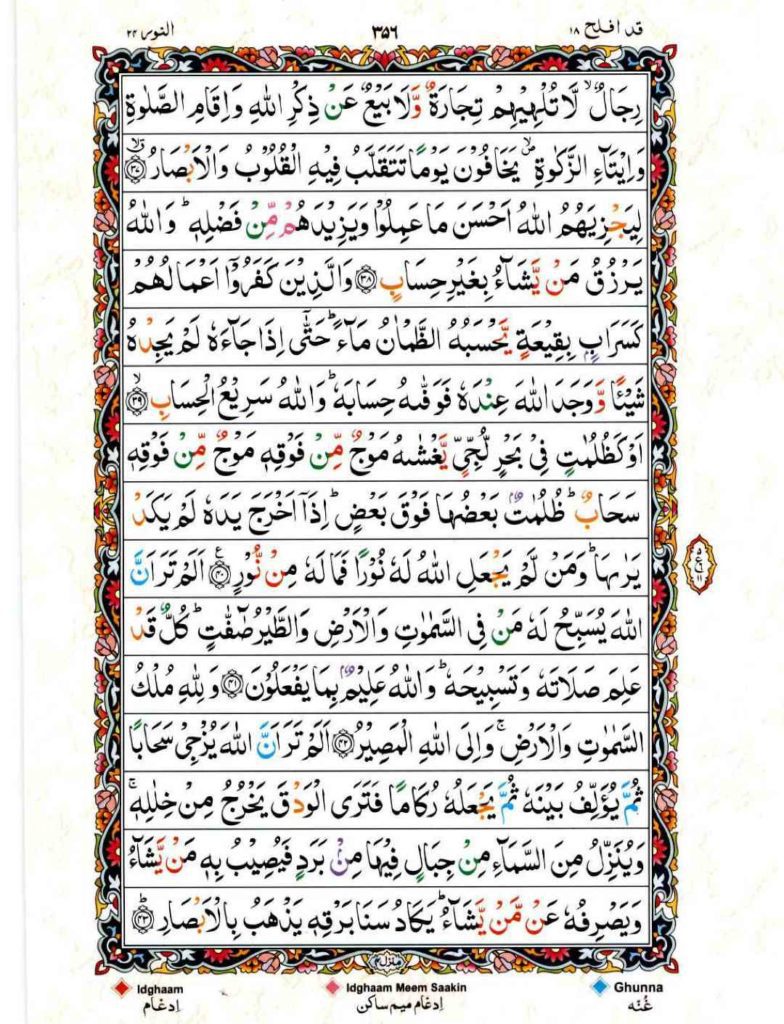 قد افلح ۱۸
۳۵۶
النور ۲۴
رِجَالٌ ۙ لَّا تُلْهِيْهِمْ تِجَارَةٌ وَّلَا بَيْعٌ عَنْ ذِكْرِ اللّٰهِ وَاِقَامِ الصَّلٰوةِ
وَاِيْتَآءِ الزَّكٰوةِ ۙ يَخَافُوْنَ يَوْمًا تَتَقَلَّبُ فِيْهِ الْقُلُوْبُ وَالْاَبْصَارُ ﴿۳۷﴾ ۙ
لِيَجْزِيَهُمُ اللّٰهُ اَحْسَنَ مَا عَمِلُوْا وَيَزِيْدَهُمْ مِّنْ فَضْلِهٖ ؕ وَاللّٰهُ
يَرْزُقُ مَنْ يَّشَآءُ بِغَيْرِ حِسَابٍ ﴿۳۸﴾ وَالَّذِيْنَ كَفَرُوْۤا اَعْمَالُهُمْ
كَسَرَابٍۭ بِقِيْعَةٍ يَّحْسَبُهُ الظَّمْاٰنُ مَآءً ؕ حَتّٰۤى اِذَا جَآءَهٗ لَمْ يَجِدْهُ
شَيْـًٔا وَّوَجَدَ اللّٰهَ عِنْدَهٗ فَوَفّٰىهُ حِسَابَهٗ ؕ وَاللّٰهُ سَرِيْعُ الْحِسَابِ ﴿۳۹﴾ ۙ
اَوْ كَظُلُمٰتٍ فِيْ بَحْرٍ لُّجِّيٍّ يَّغْشٰىهُ مَوْجٌ مِّنْ فَوْقِهٖ مَوْجٌ مِّنْ فَوْقِهٖ
سَحَابٌ ؕ ظُلُمٰتٌۢ بَعْضُهَا فَوْقَ بَعْضٍ ؕ اِذَاۤ اَخْرَجَ يَدَهٗ لَمْ يَكَدْ
يَرٰىهَا ؕ وَمَنْ لَّمْ يَجْعَلِ اللّٰهُ لَهٗ نُوْرًا فَمَا لَهٗ مِنْ نُّوْرٍ ﴿۴۰﴾ ع اَلَمْ تَرَ اَنَّ
اللّٰهَ يُسَبِّحُ لَهٗ مَنْ فِي السَّمٰوٰتِ وَالْاَرْضِ وَالطَّيْرُ صٰٓفّٰتٍ ؕ كُلٌّ قَدْ
عَلِمَ صَلَاتَهٗ وَتَسْبِيْحَهٗ ؕ وَاللّٰهُ عَلِيْمٌۢ بِمَا يَفْعَلُوْنَ ﴿۴۱﴾ وَلِلّٰهِ مُلْكُ
السَّمٰوٰتِ وَالْاَرْضِ ۚ وَاِلَى اللّٰهِ الْمَصِيْرُ ﴿۴۲﴾ اَلَمْ تَرَ اَنَّ اللّٰهَ يُزْجِيْ سَحَابًا
ثُمَّ يُؤَلِّفُ بَيْنَهٗ ثُمَّ يَجْعَلُهٗ رُكَامًا فَتَرَى الْوَدْقَ يَخْرُجُ مِنْ خِلٰلِهٖ ۚ
وَيُنَزِّلُ مِنَ السَّمَآءِ مِنْ جِبَالٍ فِيْهَا مِنْۢ بَرَدٍ فَيُصِيْبُ بِهٖ مَنْ يَّشَآءُ
وَيَصْرِفُهٗ عَنْ مَّنْ يَّشَآءُ ؕ يَكَادُ سَنَا بَرْقِهٖ يَذْهَبُ بِالْاَبْصَارِ ﴿۴۳﴾ ؕ
منزل ۴
Idghaam
Idghaam Meem Saakin
Ghunna
اِدغام
اِدغام میم ساکن
غُنّه